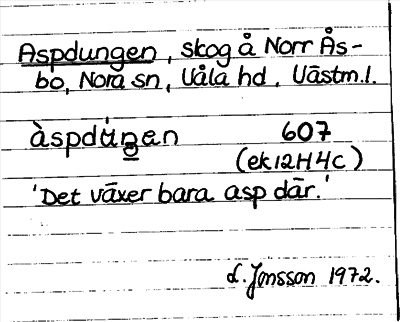 Aspdungen, skog å Norr Ås-
bo, Nora sn, Våla hd. Västm.l.
àspdúŋen 607
(ek12H4c)
'Det växer bara asp där.'
L. Jonsson 1972.